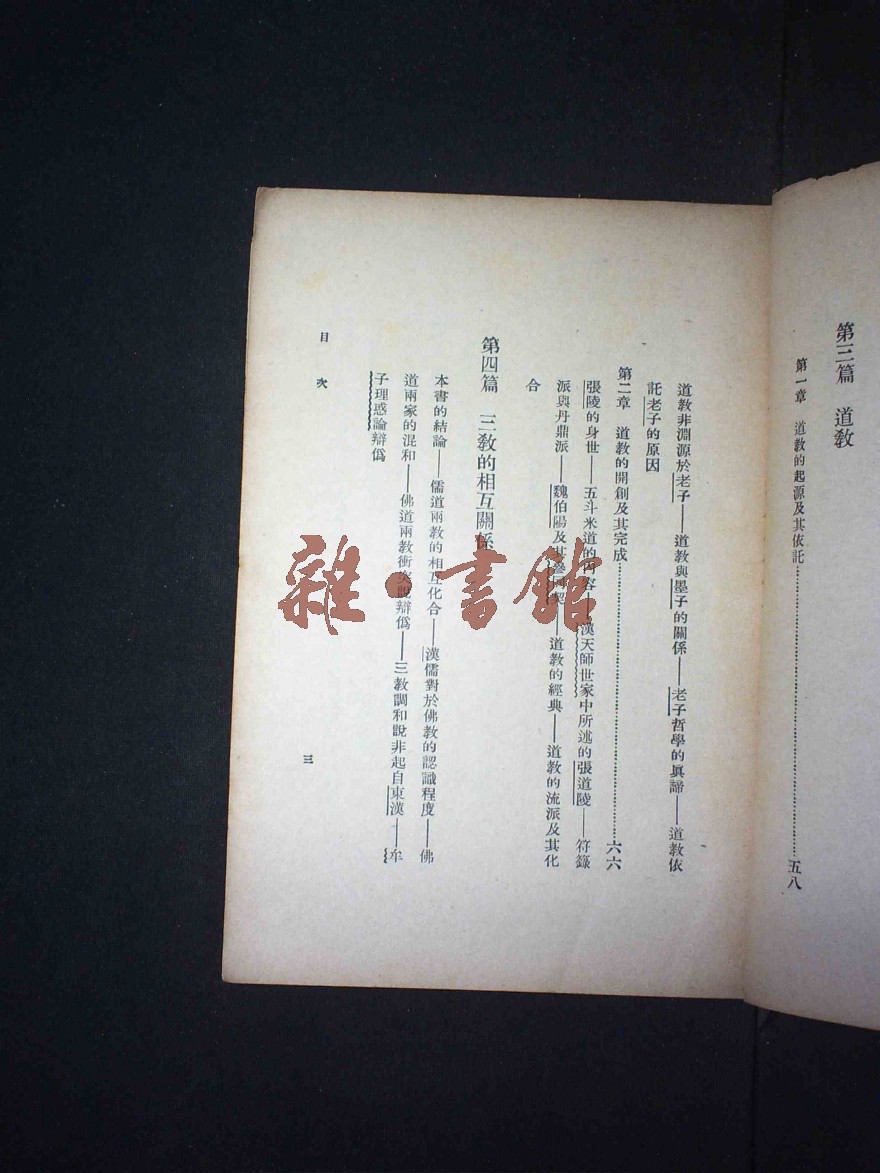 第三篇　道教
第一章　道教的起源及其依託……五八
道教非淵源於老子——道教與墨子的關係——老子哲學的眞諦——道教依
託老子的原因
第二章　道教的開創及其完成……六六
張陵的身世——五斗米道的內容——漢天師世家中所述的張道陵——符籙
派與丹鼎派——魏伯陽及其參同契——道教的經典——道教的流派及其化
合
第四篇　三教的相互關係
本書的結論——儒道兩教的相互化合——漢儒對於佛教的認識程度——佛
道兩家的混和——佛道兩教衝突說辯僞——三教調和說非起自東漢——牟
子理惑論辯僞
目次
三
雜·書館